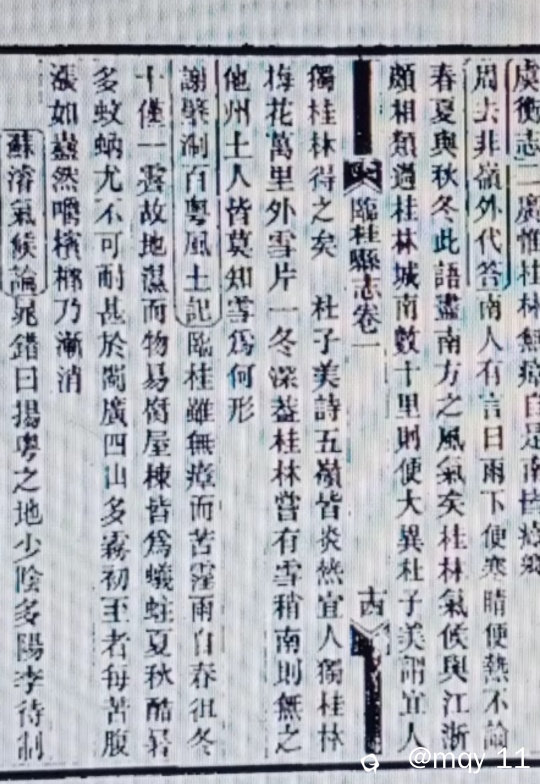 虞衡志二廣惟桂林無瘴自是南皆瘴鄉
周去非嶺外代答南人有言曰雨下便寒晴便熱不論
春夏與秋冬此語盡南方之風氣矣桂林氣候與江浙
頗相類過桂林城南數十里則便大異杜子美謂宜人
臨桂縣志卷一
古
獨桂林得之矣 杜子美詩五嶺皆炎熱宜人獨桂林
梅花萬里外雪片一冬深蓋桂林嘗有雪稍南則無之
他州土人皆莫知雪為何形
謝肇淛百粵風土記臨桂雖無瘴而苦霪雨自春徂冬
十僅一霽故地濕而物易腐屋棟皆為蟻蛀夏秋酷暑
多蚊蚋尤不可耐甚於蜀廣四山多霧初至者每苦腹
漲如蠱然嚼檳榔乃漸消
蘇濬氣候論晁錯曰揚粵之地少陰多陽李待制
@mqy_11